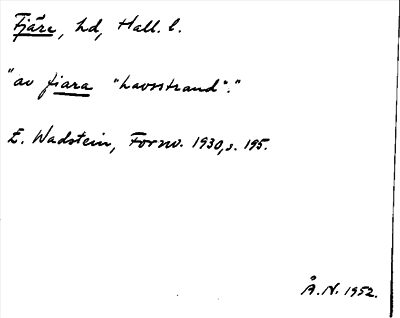 Fjäre, hd, Hall. l.
"av fiara "havsstrand"."
E. Wadstein, Fornv. 1930, s. 195.
Å.N. 1952.